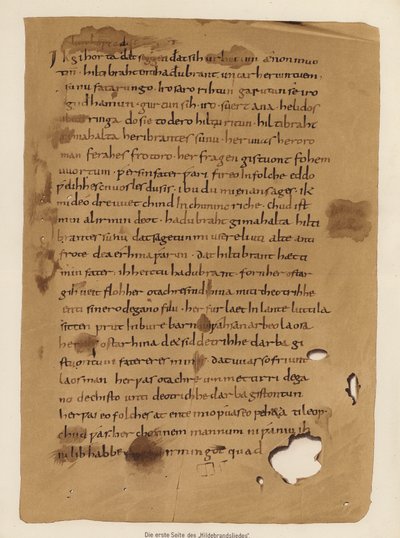 Ik gihorta dat seggen dat sih urhettun ænon muo
tin · hiltibraht enti hadubrant untar heriun tuem ·
sunu fatarungo · iro saro rihtun garutun se iro
gudhamun · gurtun sih · iro · suert ana · helidos
ubar ringa do sie to dero hiltu ritun · hiltibraht
gimahalta heribrantes sunu · her uuas heroro
man ferahes frotoro · her fragen gistuont fohem
uuortum · ƿer sin fater ƿari fireo in folche eddo
ƿelihhes cnuosles du sis · ibu du mi enan sages · ik
mi deo dre uuet chind In chunincriche · chud ist
min al irmin deot · hadubraht gimahalta hilti
brantes sunu dat sagetun mi usere liuti alte anti
frote dea erhina ƿarun · dat hiltibrant hætti
min fater · ih heittu hadubrant · forn her ostar
gihueit floh her otachres nid hina miti theotrihhe
enti sinero degano filu · her furlaet In lante luttila
sitten prut In bure barn unƿahsan arbeo laosa
ostar hina d& sid detrihhe darba gi
stuontum fatereres mines · dat uuas so friunt
laos man her ƿas otachre ummettirri dega
no dechisto unti deotrichhe darba gistontun
her ƿas eo folches at ente imo ƿuas eo feh&a ti leop ·
chud ƿas her chonnem mannum ni ƿaniu ih
iu lib habbe irmingot quad
Die erste Seite des „Hildebrandsliedes"